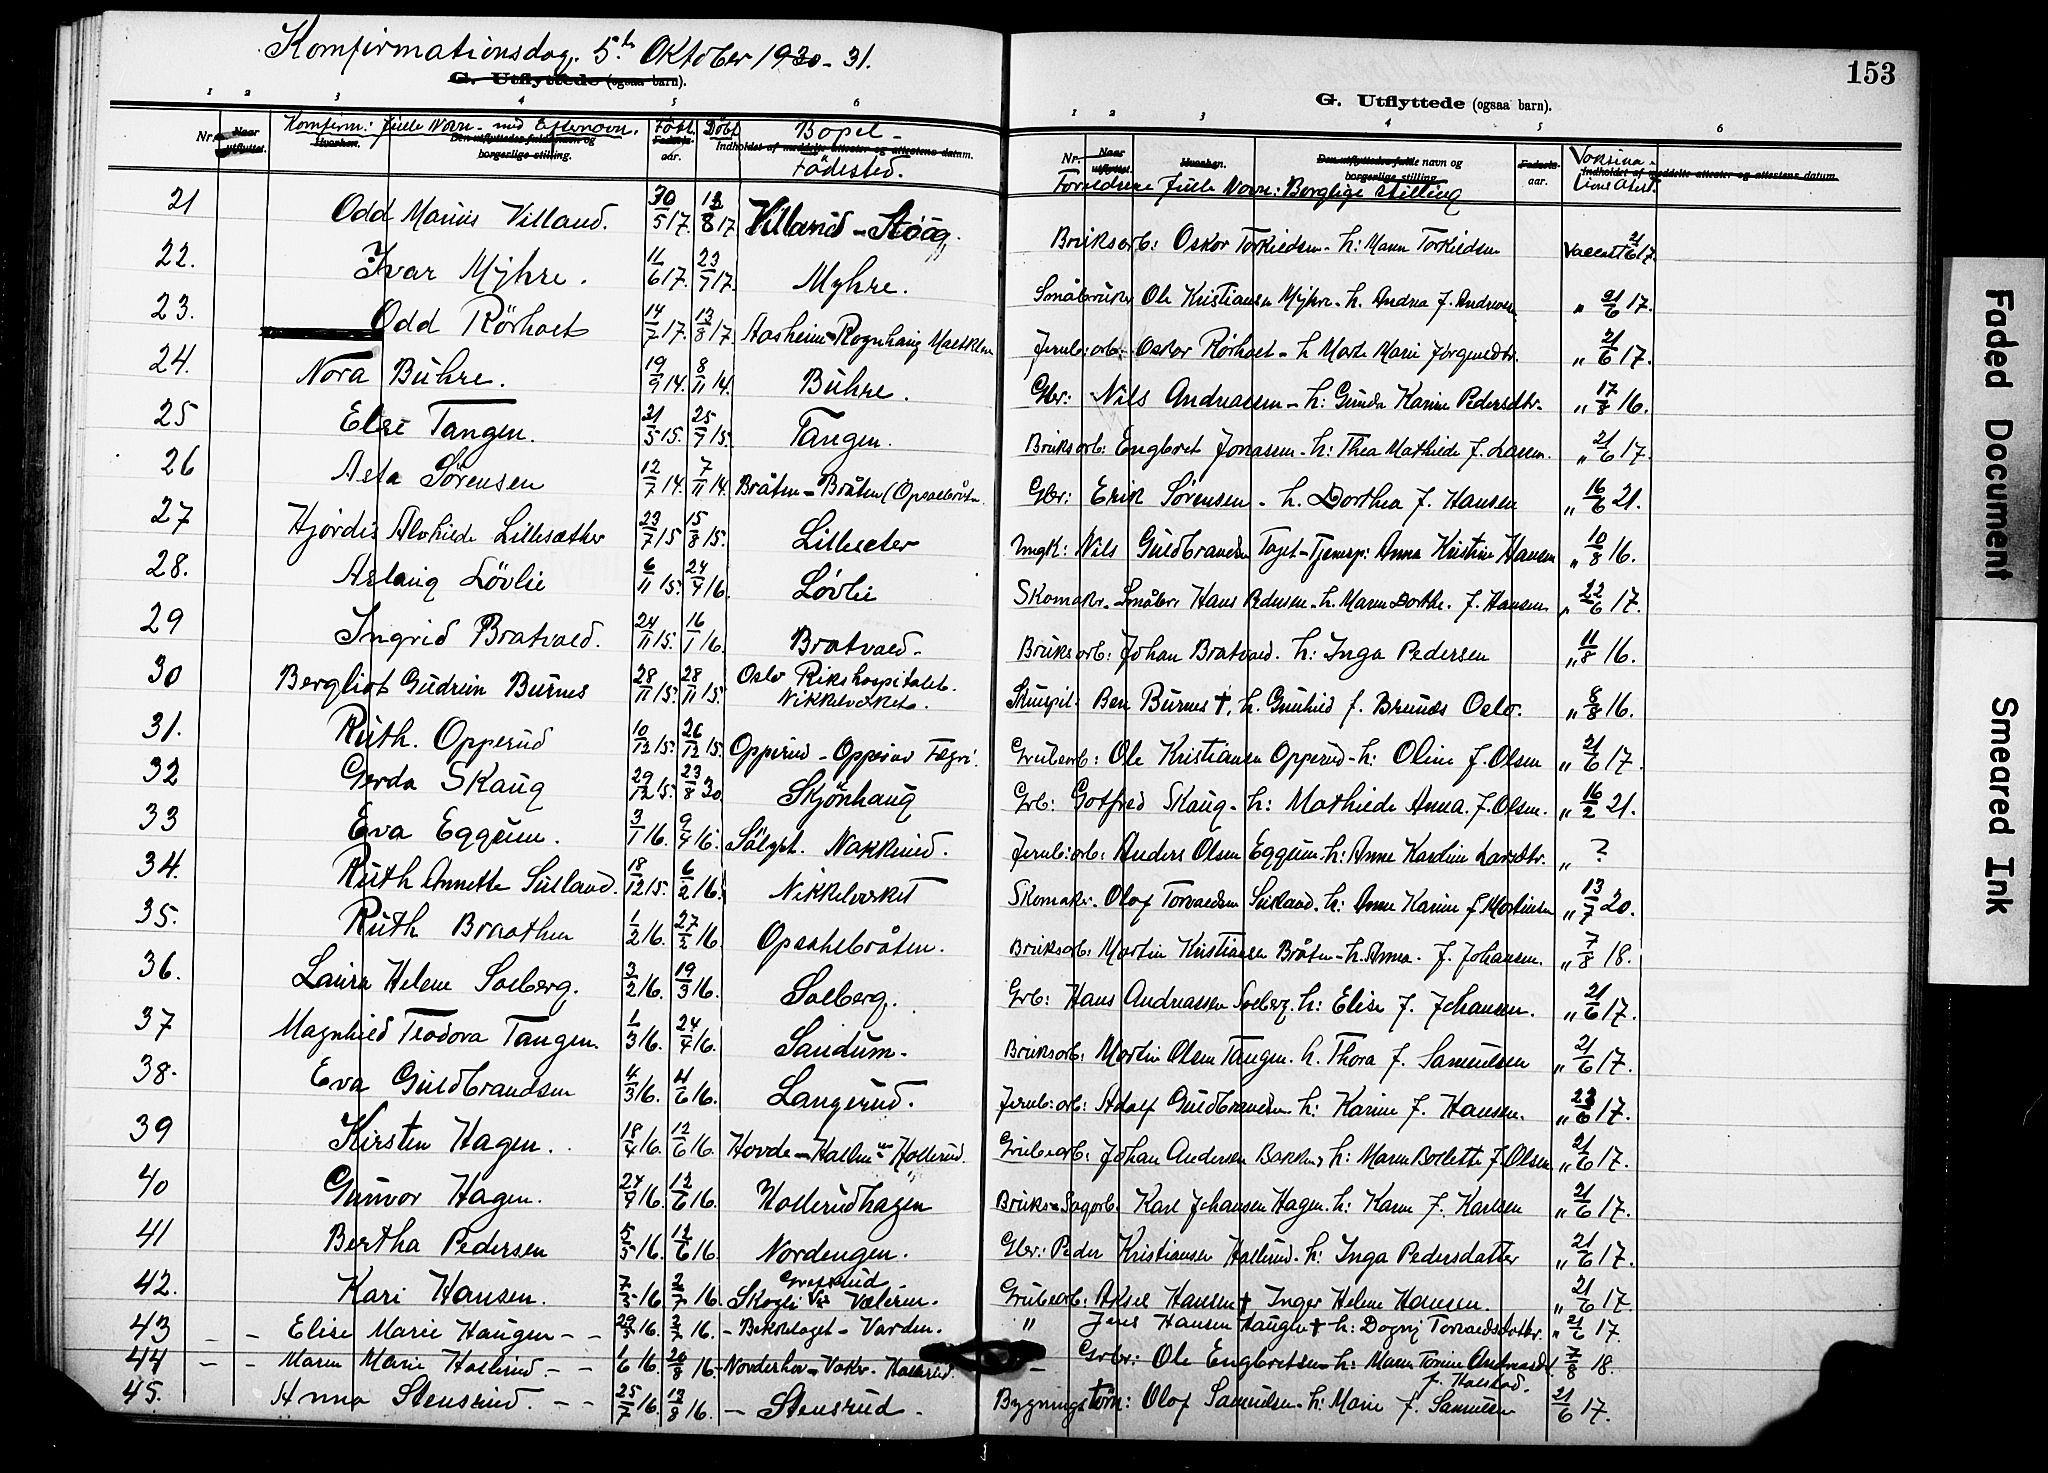 Komfirmationsdag. 5te Oktober 1930-31.
G. Utflyttede (ogsaa barn).
1 2 3 4 5 6
Nr. Naar utflyttet. Komfirm: fulle Navn - med Efternavn. Født Døbt Bopel -
Hvorhen. Den utflyttedes fulde navn og borgerlige stilling. Fødselsaar. Indholdet af meddelte attester og attestens datum.
Fødested.
21 Odd Marius Villand. 30/5 17. 12/8 17 Villand -
22. Ivar Myhre. 11/6 17. 23/9 17. Myhre.
23. Odd Rörholt 14/7 17. 13/8 17 Aasheim - Rognhaug
24. Nora Buhre. 19/9 14. 8/11 14. Buhre.
25 Else Tangen. 21/5 15. 25/9 15. Tangen.
26 Asta Sörensen 12/7 14. 7/11 14. Bråten - Bråten (Opsalbråtn
27 Hjördis Alvhilde Lillesæther 23/7 15 15/8 15. Lilleseter
28. Aslaug Lövlie 6/11 15. 24/4 16. Lövlie
29 Ingrid Bratvold. 24/11 15. 16/1 16. Bratvold.
30 Bergliot Gudrun Burnes 28/11 15. 28/11 15. Oslo Rikshospitalet. Nikkelverket.
31. Ruth. Opperud 10/12 15. 26/12 15. Opperud -
32 Gerda Skaug 29/12 15. 23/8 30. Skjönhaug
33 Eva Eggum. 3/1 16. 9/4 16. Nakkerud.
34. Ruth Annette Sulland. 18/12 15. 6/2 16. Nikkelverket
35. Ruth Braathen 1/2 16. 27/2 16. Opsahlbråten.
36. Laura Helene Solberg. 3/2 16. 19/3 16. Solberg.
37 Magnhild Teodora Tangen. 1/3 16. 24/4 16. Sandum.
38. Eva Guldbrandsen 4/3 16. 4/6 16. Langerud.
39 Kirsten Hagen. 18/4 16. 12/6 16. Hovde -
40 Gunvor Hagen. 24/4 16. 12/6 16. Hollerudhagen
41 Bertha Pedersen 5/5 16. 12/6 16. Nordengen.
42. Kari Hansen. 7/5 16 2/7 16. Skogli Væleren.
43 - - Elise Marie Haugen - - 29/5 16. 2/7 16. - Varden.
44 - - Maren Marie Haslerud - - 1/6 16. 20/8 16 - Norderhov - Vaker -
45. Anna Stensrud. - - 25/7 16. 13/8 16. - Stensrud -
153
G. Utflyttede (ogsaa barn).
1 2 3 4 5 6
Nr. Naar utflyttet. Hvorhen. Den utflyttedes fulde navn og borgerlige stilling. Fødselsaar. Indholdet af meddelte attester og attestens datum.
Foreldrene fulle Navn: Borglige stilling
Bruksarb: Oskar Torkildsen - h: Maren Torkildsen Vaccatt 21/6 17.
Småbruker Ole Kristiansen Myhre - h. Andrea f. Andresen " 21/6 17.
Jernb: arb: Oskar Rörholt - h Marte Marie Jörgensdtr. " 21/6 17.
Gbr: Nils Andreassen - h: Gunda Karine Pedersdtr. " 17/8 16.
Bruksarb: Engbret Jonassen - h: Thea Mathilde f. Larsen. " 21/6 17.
Gbr: Erik Sørensen - h. Dorthea f. Hansen " 16/6 21.
Ungk: Nils Guldbrandsen Toget - Tjenep: Anna Kristine Hansen " 10/8 16.
Skomaker - Småbr Hans Pedersen - h. Maren Dorthe. f. Hansen " 22/6 17.
Bruksarb: Johan Bratvold. h: Inga Pedersen " 11/8 16.
Skuespil: Ben Burnes †. h. Gunhild f. Oslo. " 8/8 16.
Grubearb: Ole Kristiansen Opperud - h: Oline f. Olsen " 21/6 17.
Grb: Gotfred Skaug - h: Mathilde Anna. f. Olsen. " 16/2 21.
Jernb: arb: Anders Olsen Eggum - h: Anne Karoline Larsdtr. " ?
Skomaker - Olaf Torvaldsen Sulland - h: Anne Karine f Martinsen " 13/7 20.
Bruksarb: Martin Kristiansen Bråten - h. Anna. f. Johansen. " 7/8 18.
Grb: Hans Andreassen Solberg. h: Elise f. Johansen. " 21/6 17.
Bruksarb: Martin Olsen Tangen. h. Thora f. Samuelsen " 21/6 17.
Jernb: arb: Adolf Guldbrandsen h: Karine f. Hansen. " 23/6 17.
Grubearb: Johan Andersen Bakken, h: Maren Bollette f. Olsen " 21/6 17.
Bruks - Sagarb. Karl Johansen Hagen. h: Karen f. Karlsen " 21/6 17.
Gbr: Peder Kristiansen h: Inga Pedersdatter " 21/6 17.
Grubearb: Aksel Hansen † Inger Helene Hansen. " 21/6 17.
" Jens Hansen Haugen † h: Dagny Torvaldsdatter. " 21/6 17.
- Grbr: Ole Engbretsen h: Maren Torine f. Halstad. 7/8 18.
Bygningstöm: Olof Samuelsen - h: Marie f. Samuelsen 21/6 17.
Faded Document
Smeared Ink